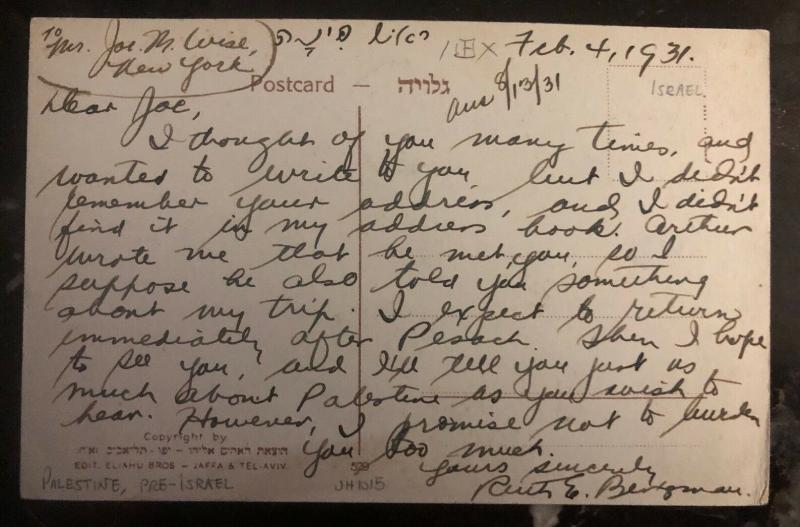 To
Mr. Joe M. Wise,
New York
ראש פינה
Feb. 4, 1931.
Postcard – גלויה
ans 8/13/31
ISRAEL
Dear Joe,
I thought of you many times, and
wanted to write to you, but I didn't
remember your address, and I didn't
find it in my address book. Arthur
wrote me that he met you, so I
suppose he also told you something
about my trip. I expect to return
immediately after Pesach. Then I hope
to see you, and I'll tell you just as
much about Palestine as you wish to
hear. However, I promise not to burden
you too much.
Yours sincerely
Ruth E. Bergman.
Copyright by
הוצאת האחים אליהו - יפו - תל-אביב
EDIT. ELIAHU BROS - JAFFA & TEL-AVIV.
529
PALESTINE, PRE-ISRAEL
JH1015